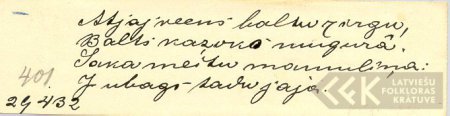 Atjaj veens baltu zirgu,
Balts kazoks mugurâ.
Saka meitu mamuliņa:
J ubags tadu jaja.
401.
29432
LATVIEŠU
FOLKLORAS
KRĀTUVE